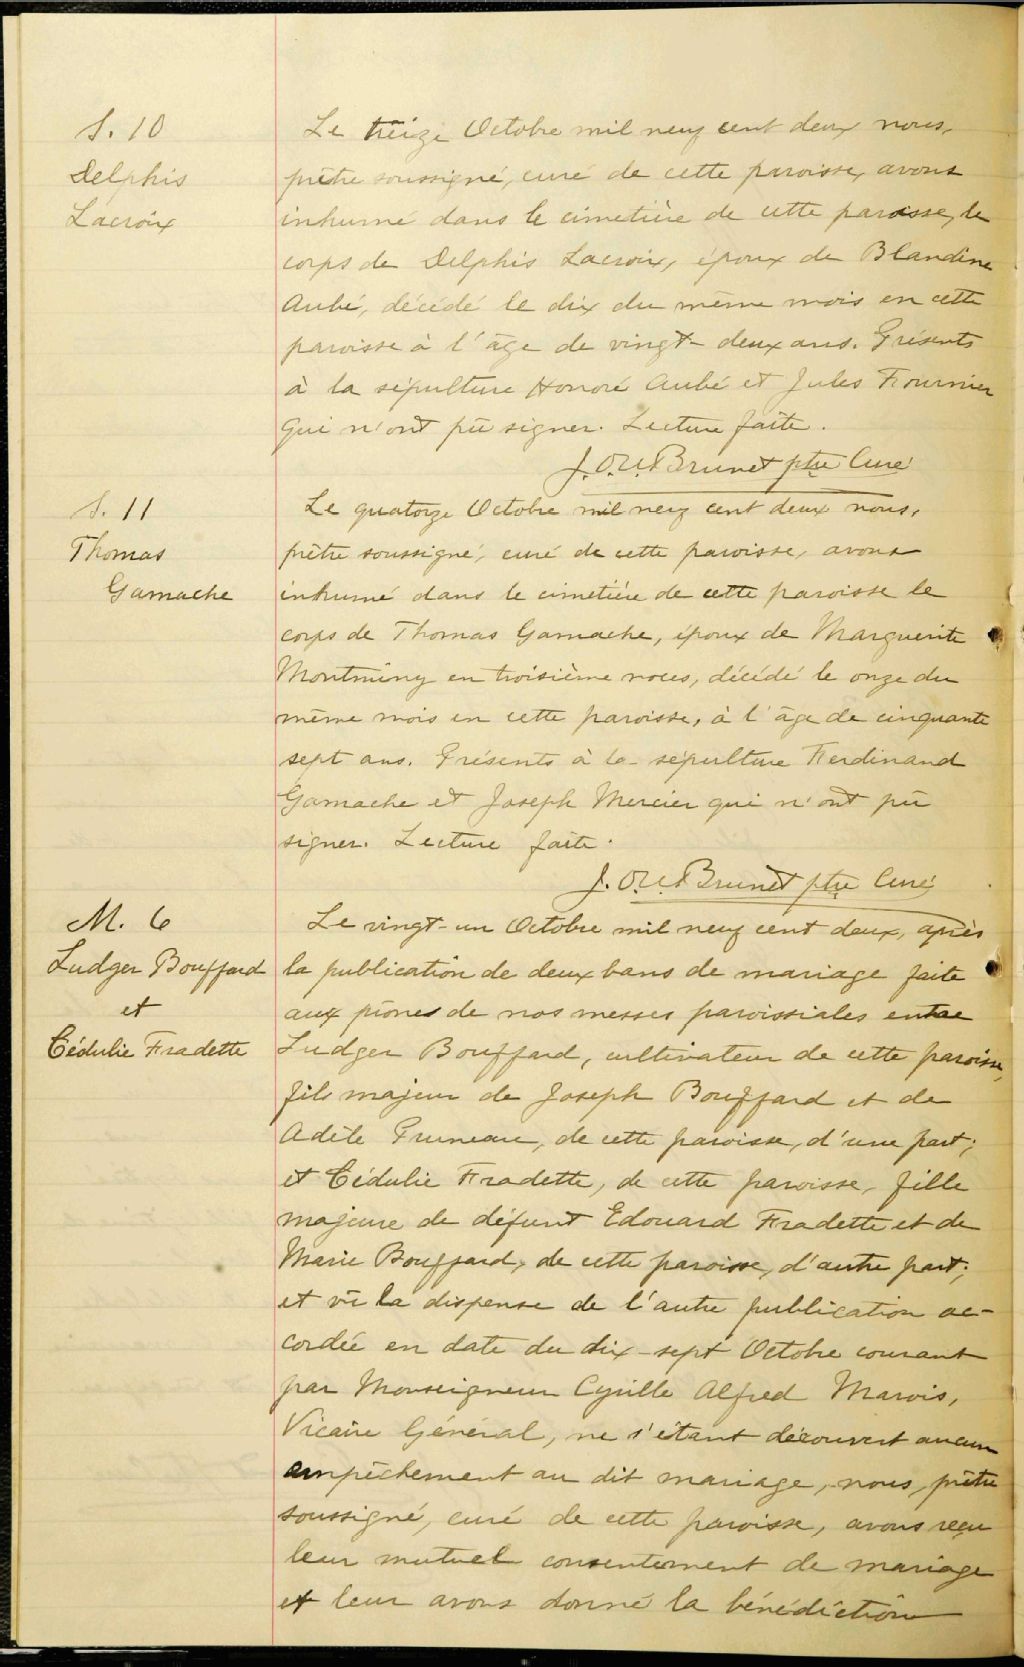 S. 10
Delphis
Lacroix
Le treize Octobre mil neuf cent deux nous,
prêtre soussigné, curé de cette paroisse, avons
inhumé dans le cimetière de cette paroisse, le
corps de Delphis Lacroix, époux de Blandine
Aubé, décédé le dix du même mois en cette
paroisse à l'âge de vingt-deux ans. Présents
à la sépulture Honoré Aubé et Jules Fournier
qui n'ont pû signer. Lecture faite.
J. O. U. Brunet ptre Curé
S. 11
Thomas
Gamache
Le quatorze Octobre mil neuf cent deux nous,
prêtre soussigné, curé de cette paroisse, avons
inhumé dans le cimetière de cette paroisse le
corps de Thomas Gamache, époux de Marguerite
Montminy en troisième noces, décédé le onze du
même mois en cette paroisse, à l'âge de cinquante
sept ans. Présents à la sépulture Ferdinand
Gamache et Joseph Mercier qui n'ont pû
signer. Lecture faite.
J. O. U. Brunet ptre Curé
M. 6
Ludger Bouffard
et
Cédulie Fradette
Le vingt-un Octobre mil neuf cent deux, après
la publication de deux bans de mariage faite
aux prônes de nos messes paroissiales entre
Ludger Bouffard, cultivateur de cette paroisse,
fils majeur de Joseph Bouffard et de
Adèle Pruneau, de cette paroisse, d'une part;
et Cédulie Fradette, de cette paroisse, fille
majeure de défunt Edouard Fradette et de
Marie Bouffard, de cette paroisse, d'autre part;
et vû la dispense de l'autre publication ac-
cordée en date du dix-sept Octobre courant
par Monseigneur Cyrille Alfred Marois,
Vicaire Général, ne s'étant découvert aucun
empêchement au dit mariage, nous, prêtre
soussigné, curé de cette paroisse, avons reçu
leur mutuel consentement de mariage
et leur avons donné la bénédiction